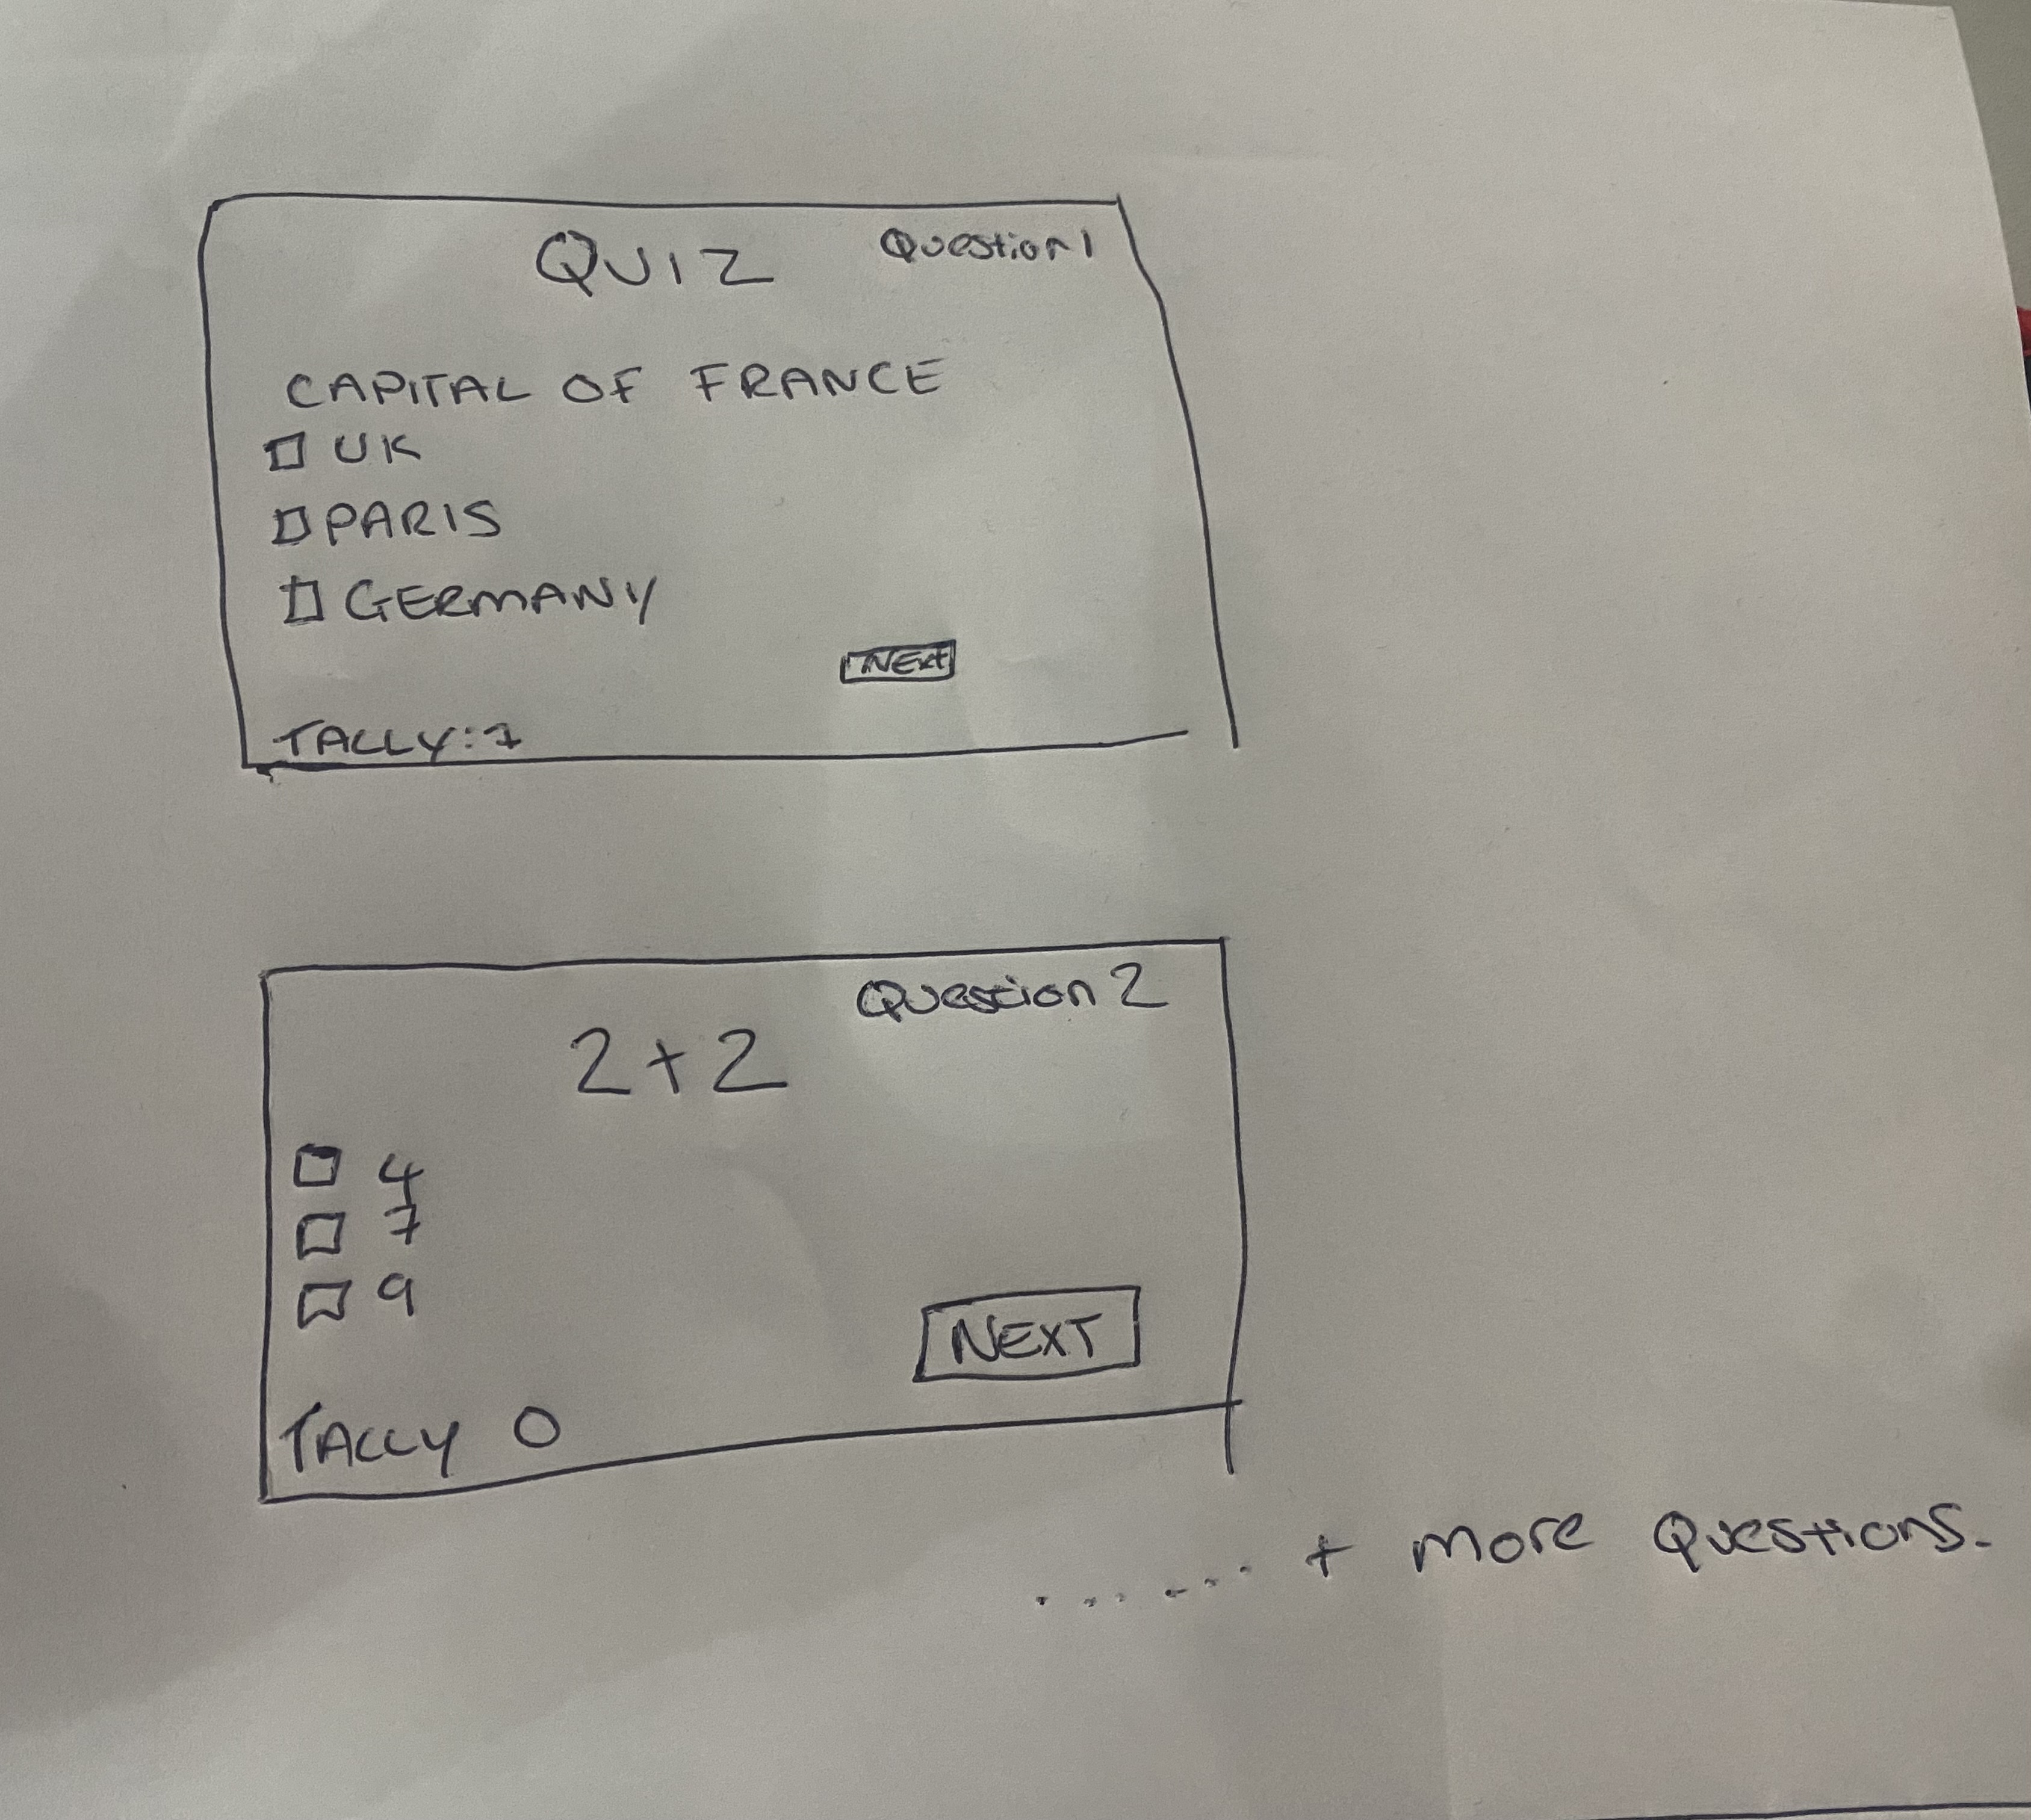 QUIZ Question 1
CAPITAL OF FRANCE
UK
PARIS
GERMANY
NEXT
TALLY: 7
Question 2
2+2
4
7
9
NEXT
TALLY 0
...... + more Questions.